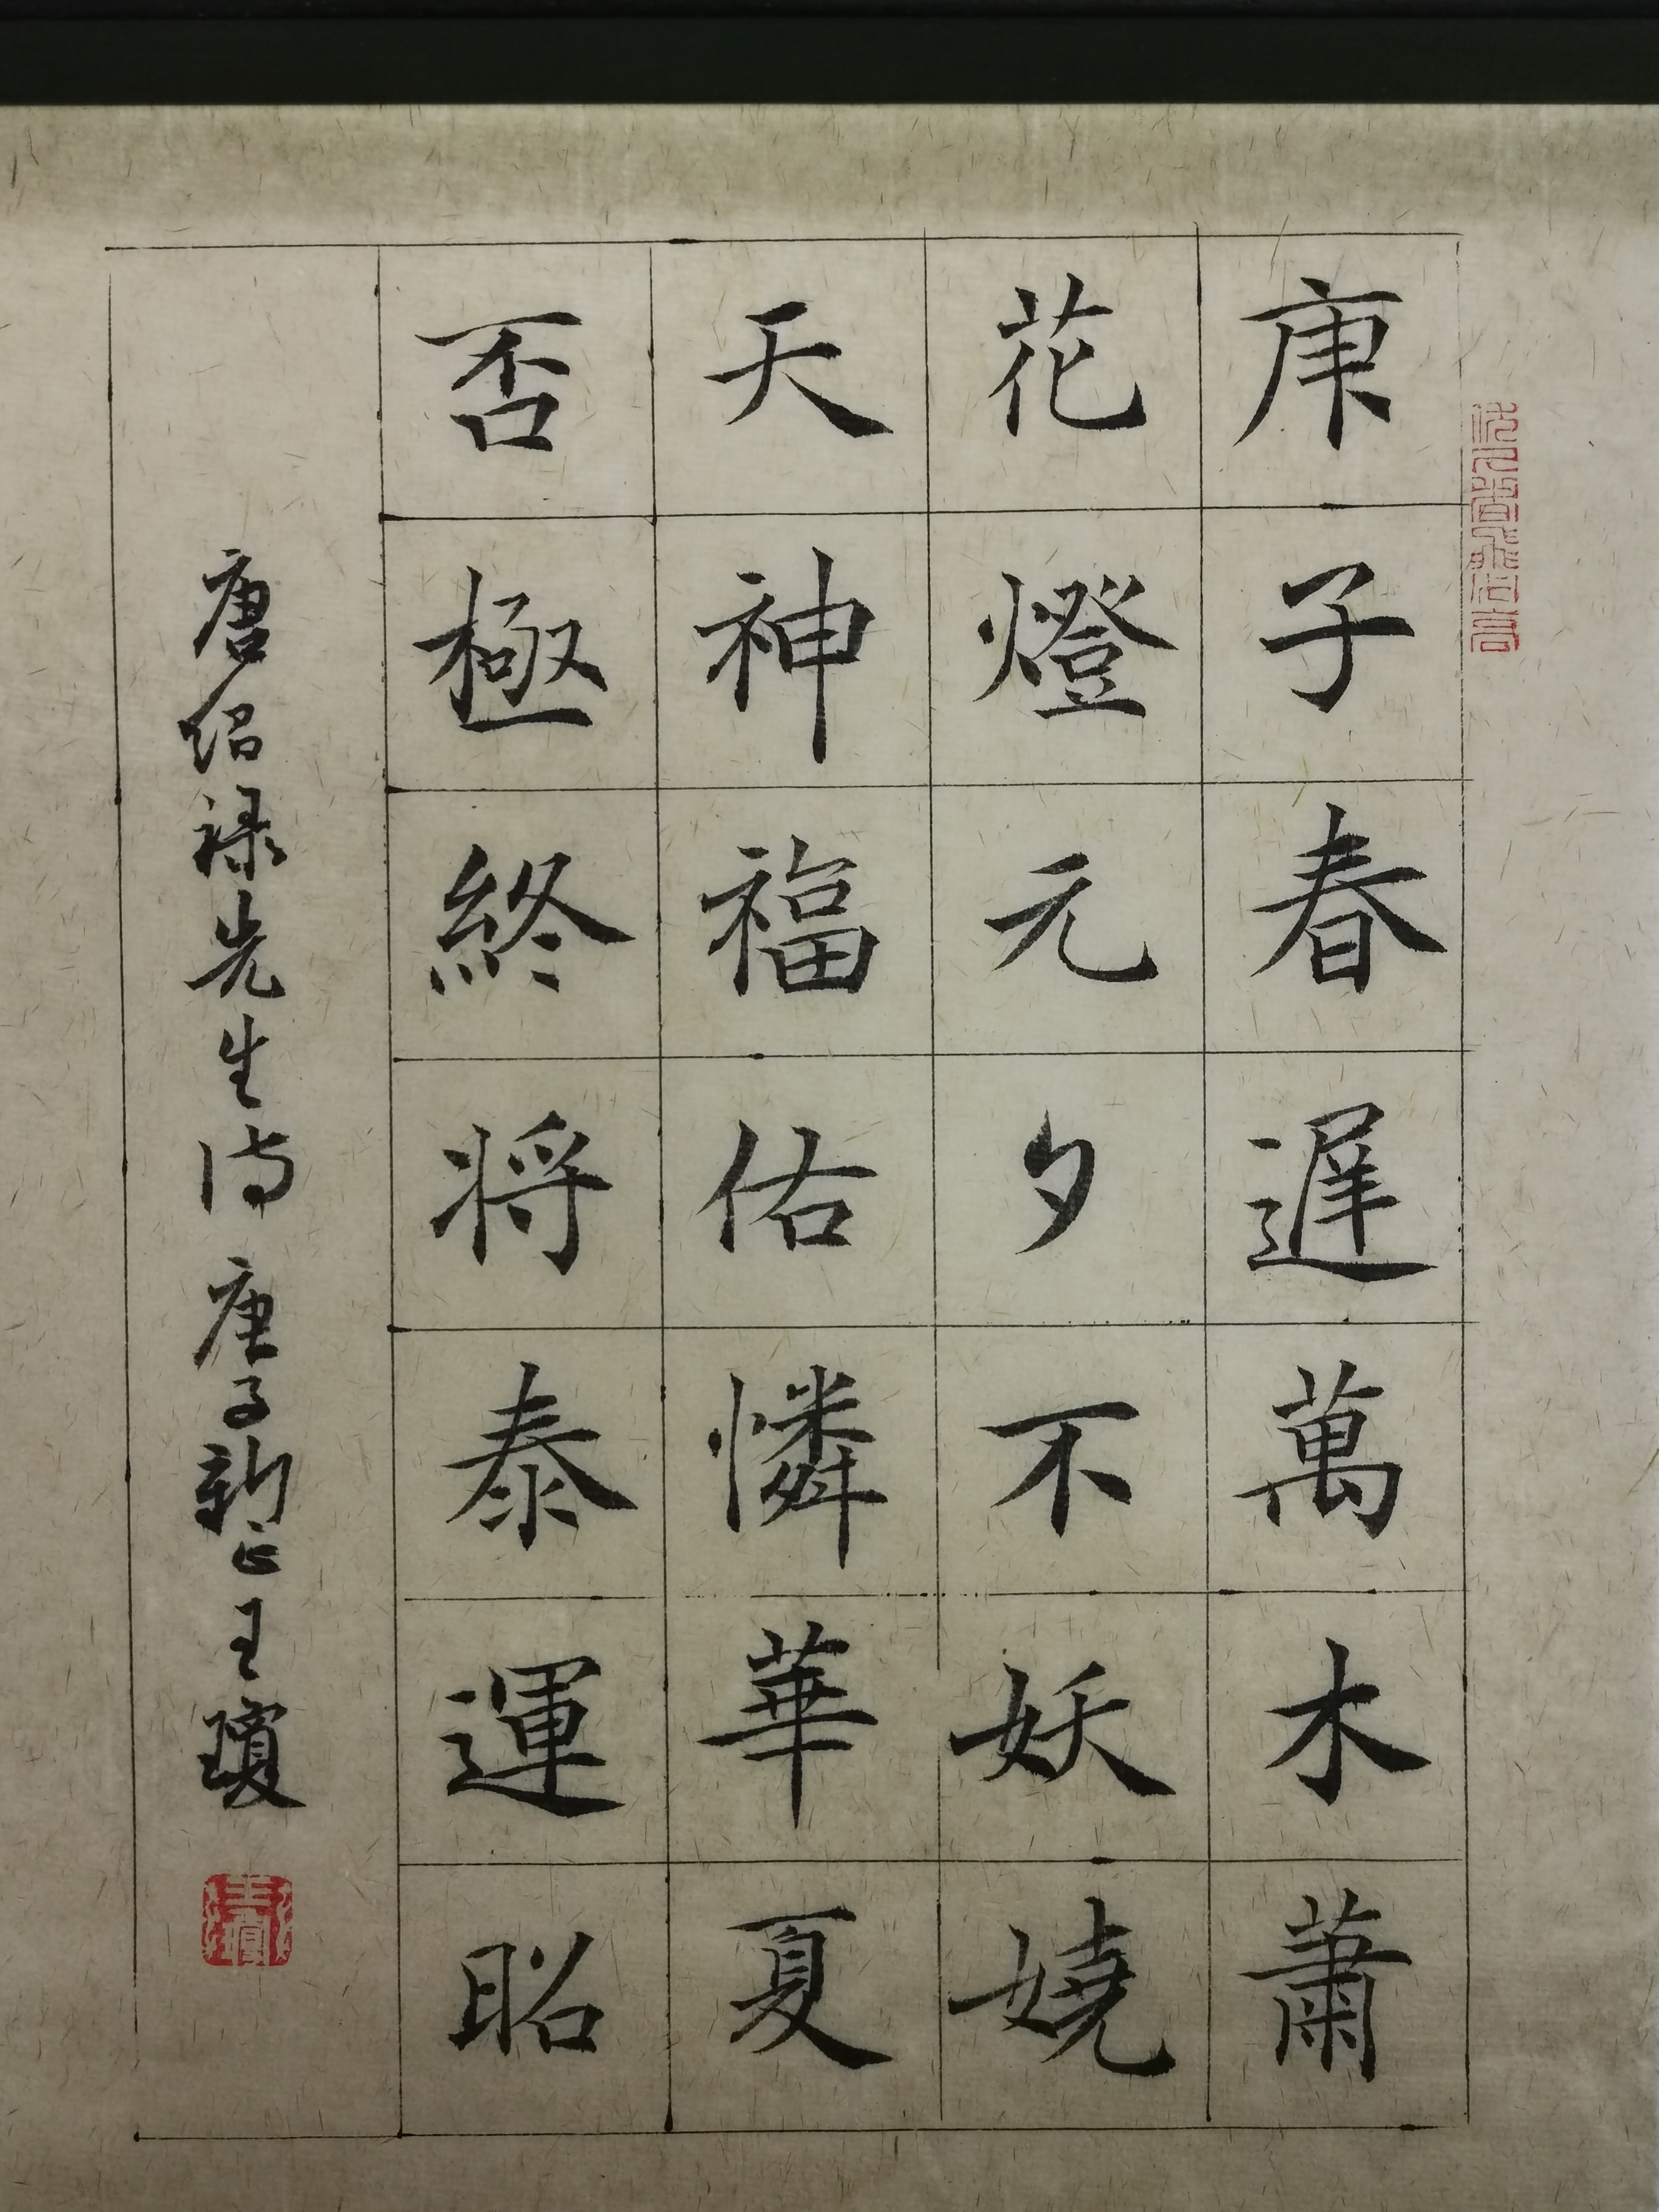 庚子春遲萬木蕭
花燈元夕不妖嬈
天神福佑憐華夏
否極終將泰運昭
唐绍禄先生诗 庚子新正王瓊